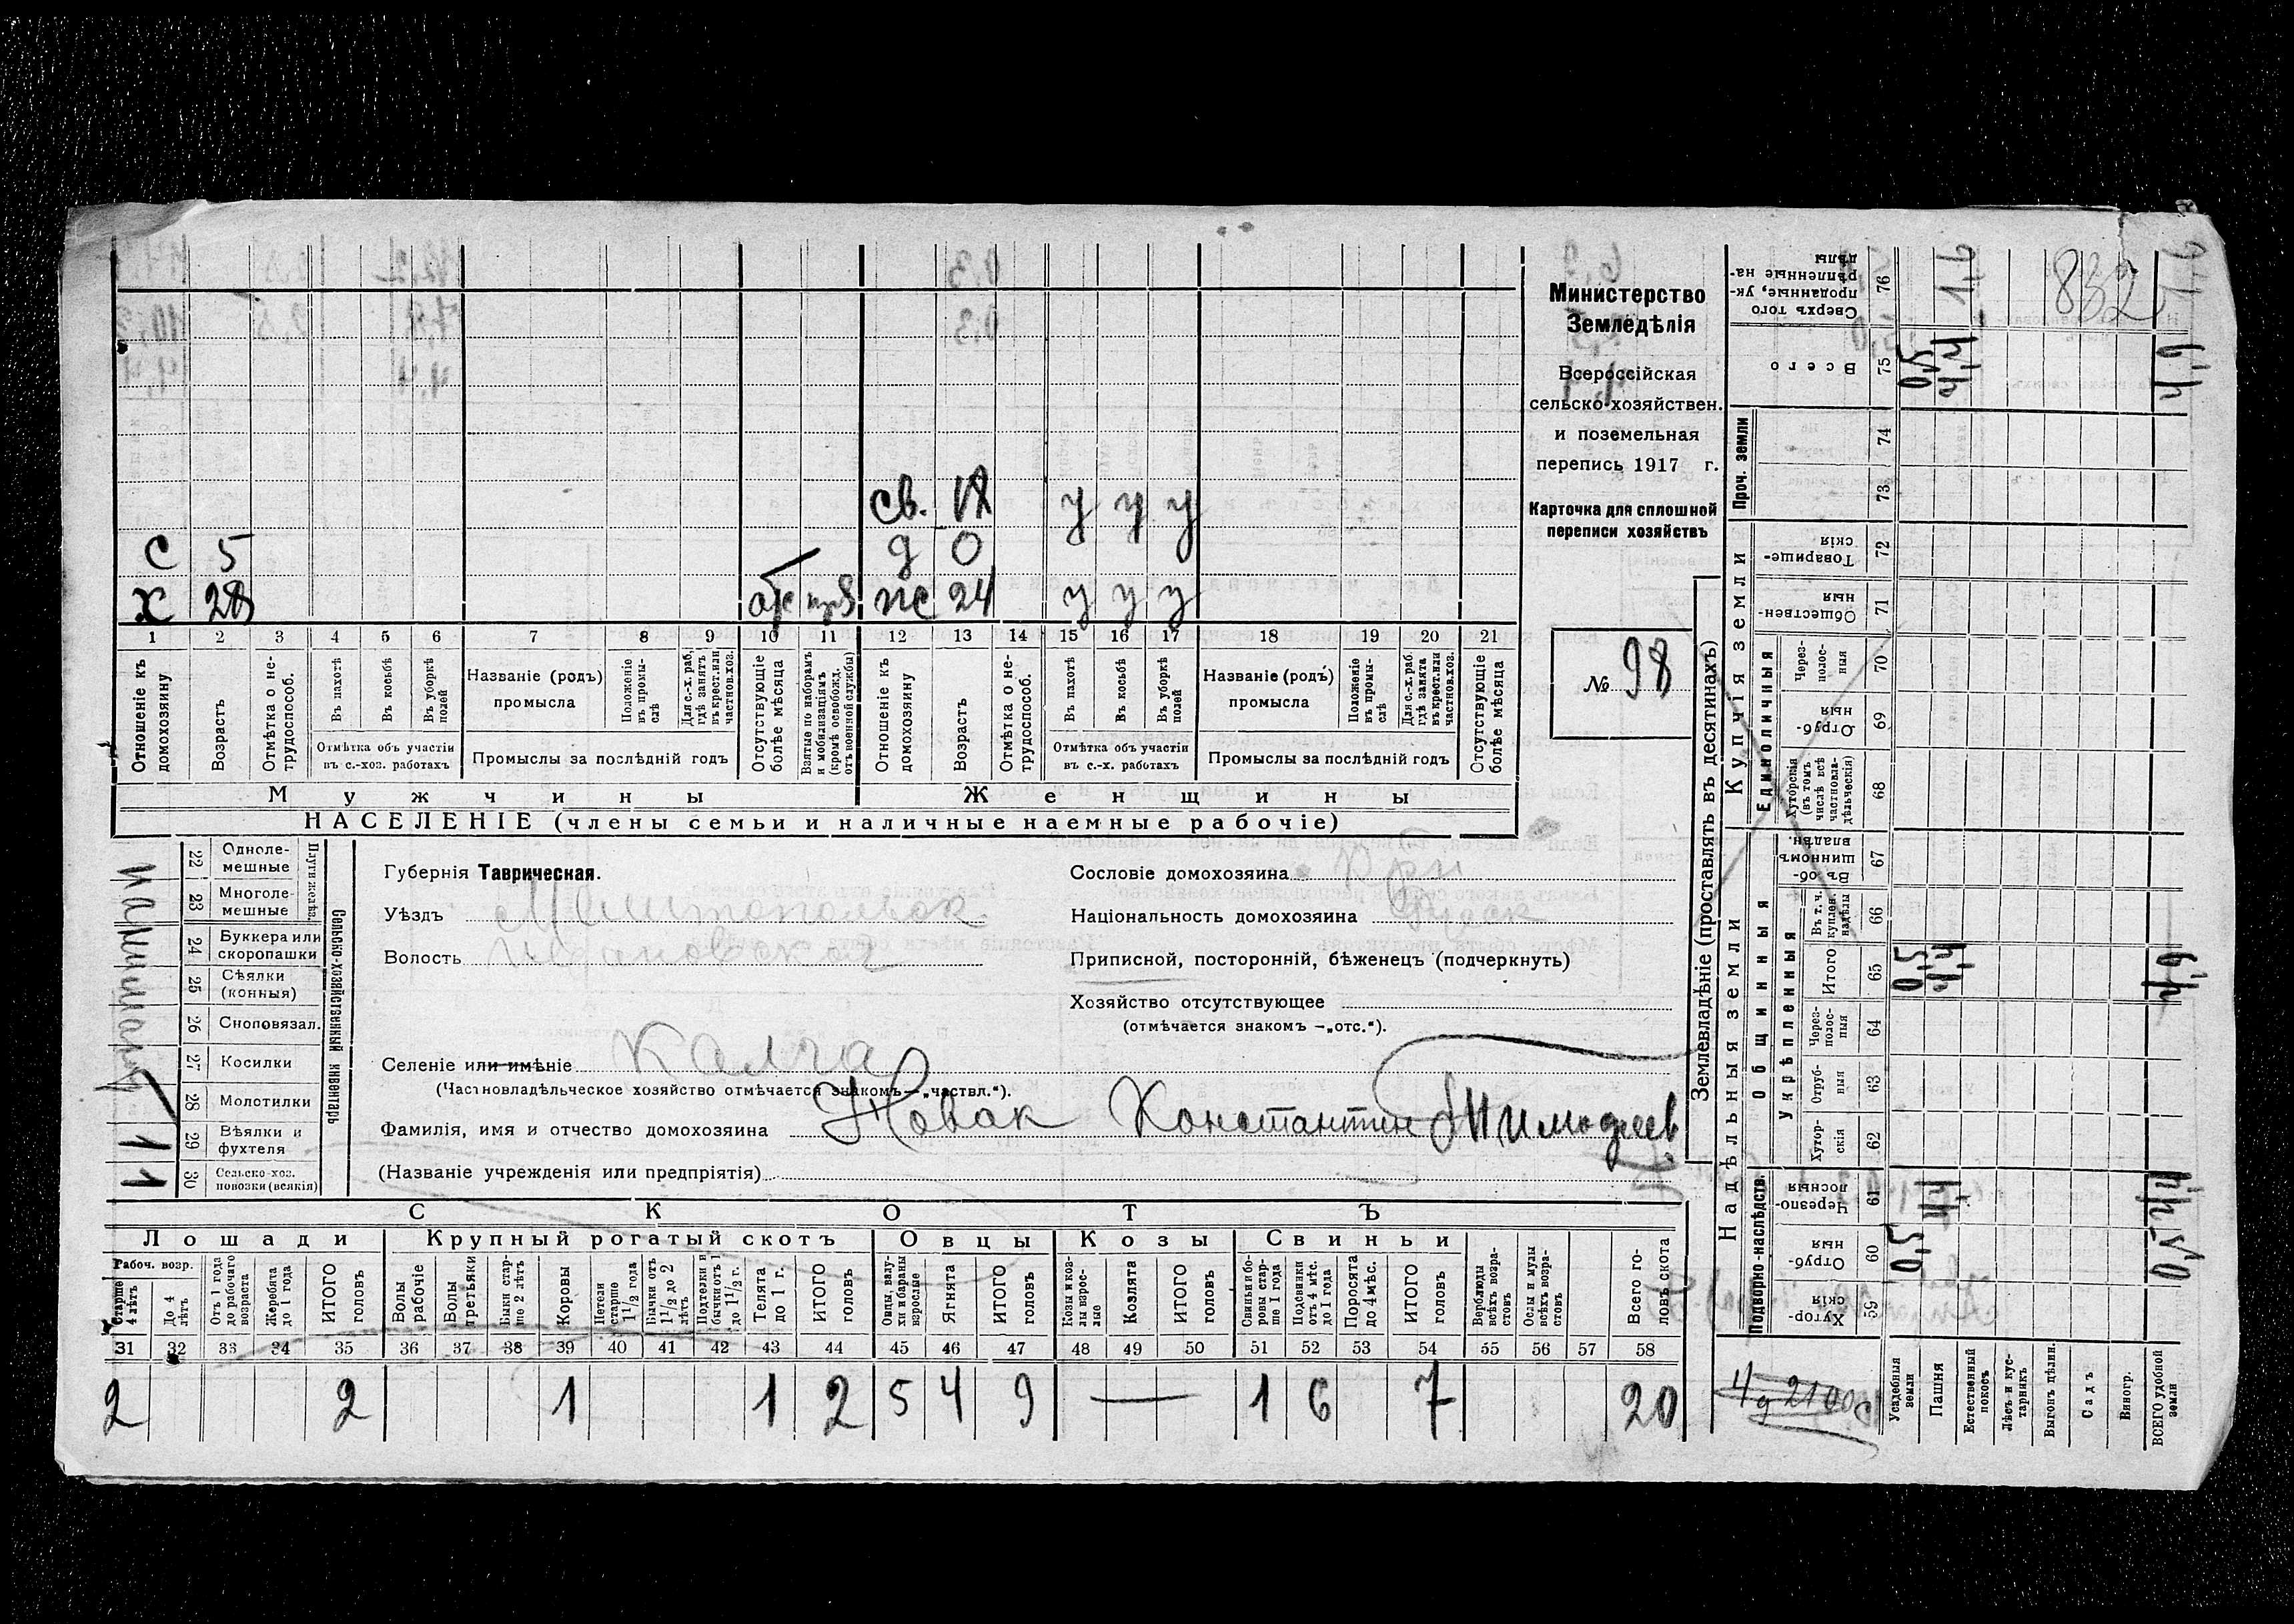 с 5
х 28
св. 18
у у у
д 0
отс
пс 24
у у у
1 2 3 4 5 6 7 8 9 10 11 12 13 14 15 16 17 18 19 20 21
Отношеніе къ домохозяину
Возрастъ
Отмѣтка о не-трудоспособ.
Въ пахотѣ
Въ косьбѣ
Въ уборкѣ полей
Отмѣтка объ участіи
въ с.-хоз. работахъ
Названіе (родъ)
промысла
Положеніе въ промы-слѣ
Для с.-х. раб., гдѣ занятъ въ крест. или частнов. хоз.
Промыслы за послѣдній годъ
Отсутствующіе болѣе мѣсяца
Взятые по наборамъ и мобилизаціямъ (кромѣ освобожд. отъ военной службы)
Отношеніе къ домохозяину
Возрастъ
Отмѣтка о не-трудоспособ.
Въ пахотѣ
Въ косьбѣ
Въ уборкѣ полей
Отмѣтка объ участіи
въ с.-х. работахъ
Названіе (родъ)
промысла
Положеніе въ промы-слѣ
Для с.-х. раб. гдѣ занята въ крест. или частнов. хоз.
Промыслы за послѣдній годъ
Отсутствующіе болѣе мѣсяца
Мужчины
Женщины
НАСЕЛЕНІЕ (члены семьи и наличные наемные рабочіе)
Министерство
Земледѣлія
Всероссійская
сельско-хозяйствен.
и поземельная
перепись 1917 г.
Карточка для сплошной
переписи хозяйствъ
№ 98
22 Одноле-мешные
23 Многоле-мешные
24 Буккера или скоропашки
25 Сѣялки (конныя)
26 Сноповязал.
27 Косилки
28 Молотилки
29 Вѣялки и фухтеля 1
30 Сельско-хоз. повозки (всякія) 1
Сельско-хозяйственный инвентарь
Губернія Таврическая.
Уѣздъ Мелитопольск
Волость
Селеніе или имѣніе Калга
(Частновладѣльческое хозяйство отмѣчается знакомъ—„частвл.“).
Фамилія, имя и отчество домохозяина Новак Константин Тимофеев
(Названіе учрежденія или предпріятія)
Сословіе домохозяина Кр
Національность домохозяина русск
Приписной, посторонній, бѣженецъ (подчеркнуть)
Хозяйство отсутствующее
(отмѣчается знакомъ —„отс.“).
СКОТЪ
Лошади
Крупный рогатый скотъ
Овцы
Козы
Свиньи
Рабоч. возр.
Старше 4 лѣтъ
До 4 лѣтъ
Отъ 1 года до рабочаго возраста
Жеребята до 1 года
ИТОГО головъ
Волы рабочіе
Волы третьяки
Быки стар-ше 2 лѣтъ
Коровы
Нетели старше 1½ года
Бычки отъ 1½ до 2 лѣтъ
Подтелки и бычки отъ 1 до 1½ г.
Телята до 1 г.
ИТОГО головъ
Овцы, валу-хи и бараны взрослые
Ягнята
ИТОГО головъ
Козы и коз-лы взрос-лые
Козлята
ИТОГО головъ
Свиньи и бо-ровы стар-ше 1 года
Подсвинки отъ 4 мѣс. до 1 года
Поросята до 4 мѣс.
ИТОГО головъ
Верблюды всѣхъ возра-стовъ
Ослы и мулы всѣхъ возра-стовъ
Всего го-ловъ скота
31 32 33 34 35 36 37 38 39 40 41 42 43 44 45 46 47 48 49 50 51 52 53 54 55 56 57 58
2 2 1 1 2 5 4 9 — 1 6 7 20
Землевладѣніе (проставлять въ десятинахъ)
Купчія земли
Надѣльныя земли
Проч. земли
Единоличныя
Общинныя
Укрѣпленныя
Подворно-наслѣдств.
Сверхъ того проданные, ук-рѣпленные на-дѣлы 76 1,6 832
Всего 75 0,5 4,4
74
73
Товарище-скія 72
Обществен-ныя 71
Через-полос-ныя 70
Отруб-ныя 69
Хуторскія (въ томъ числѣ всѣ частновла-дѣльческія) 68
Въ об-щинномъ владѣн. 67
Въ т. ч. куплен. надѣлы 66
Итого 65 0,5 4,4
Через-полос-ныя 64
Отруб-ныя 63
Хутор-скія 62
Черезпо-лосныя 61 4,4
Отруб-ныя 60 0,5
Хутор-скія 59
Усадебныя земли
Пашня
Естественный покосъ
Лѣсъ и кус-тарникъ
Выгонъ цѣлин.
Садъ
Виногр.
ВСЕГО удобной земли